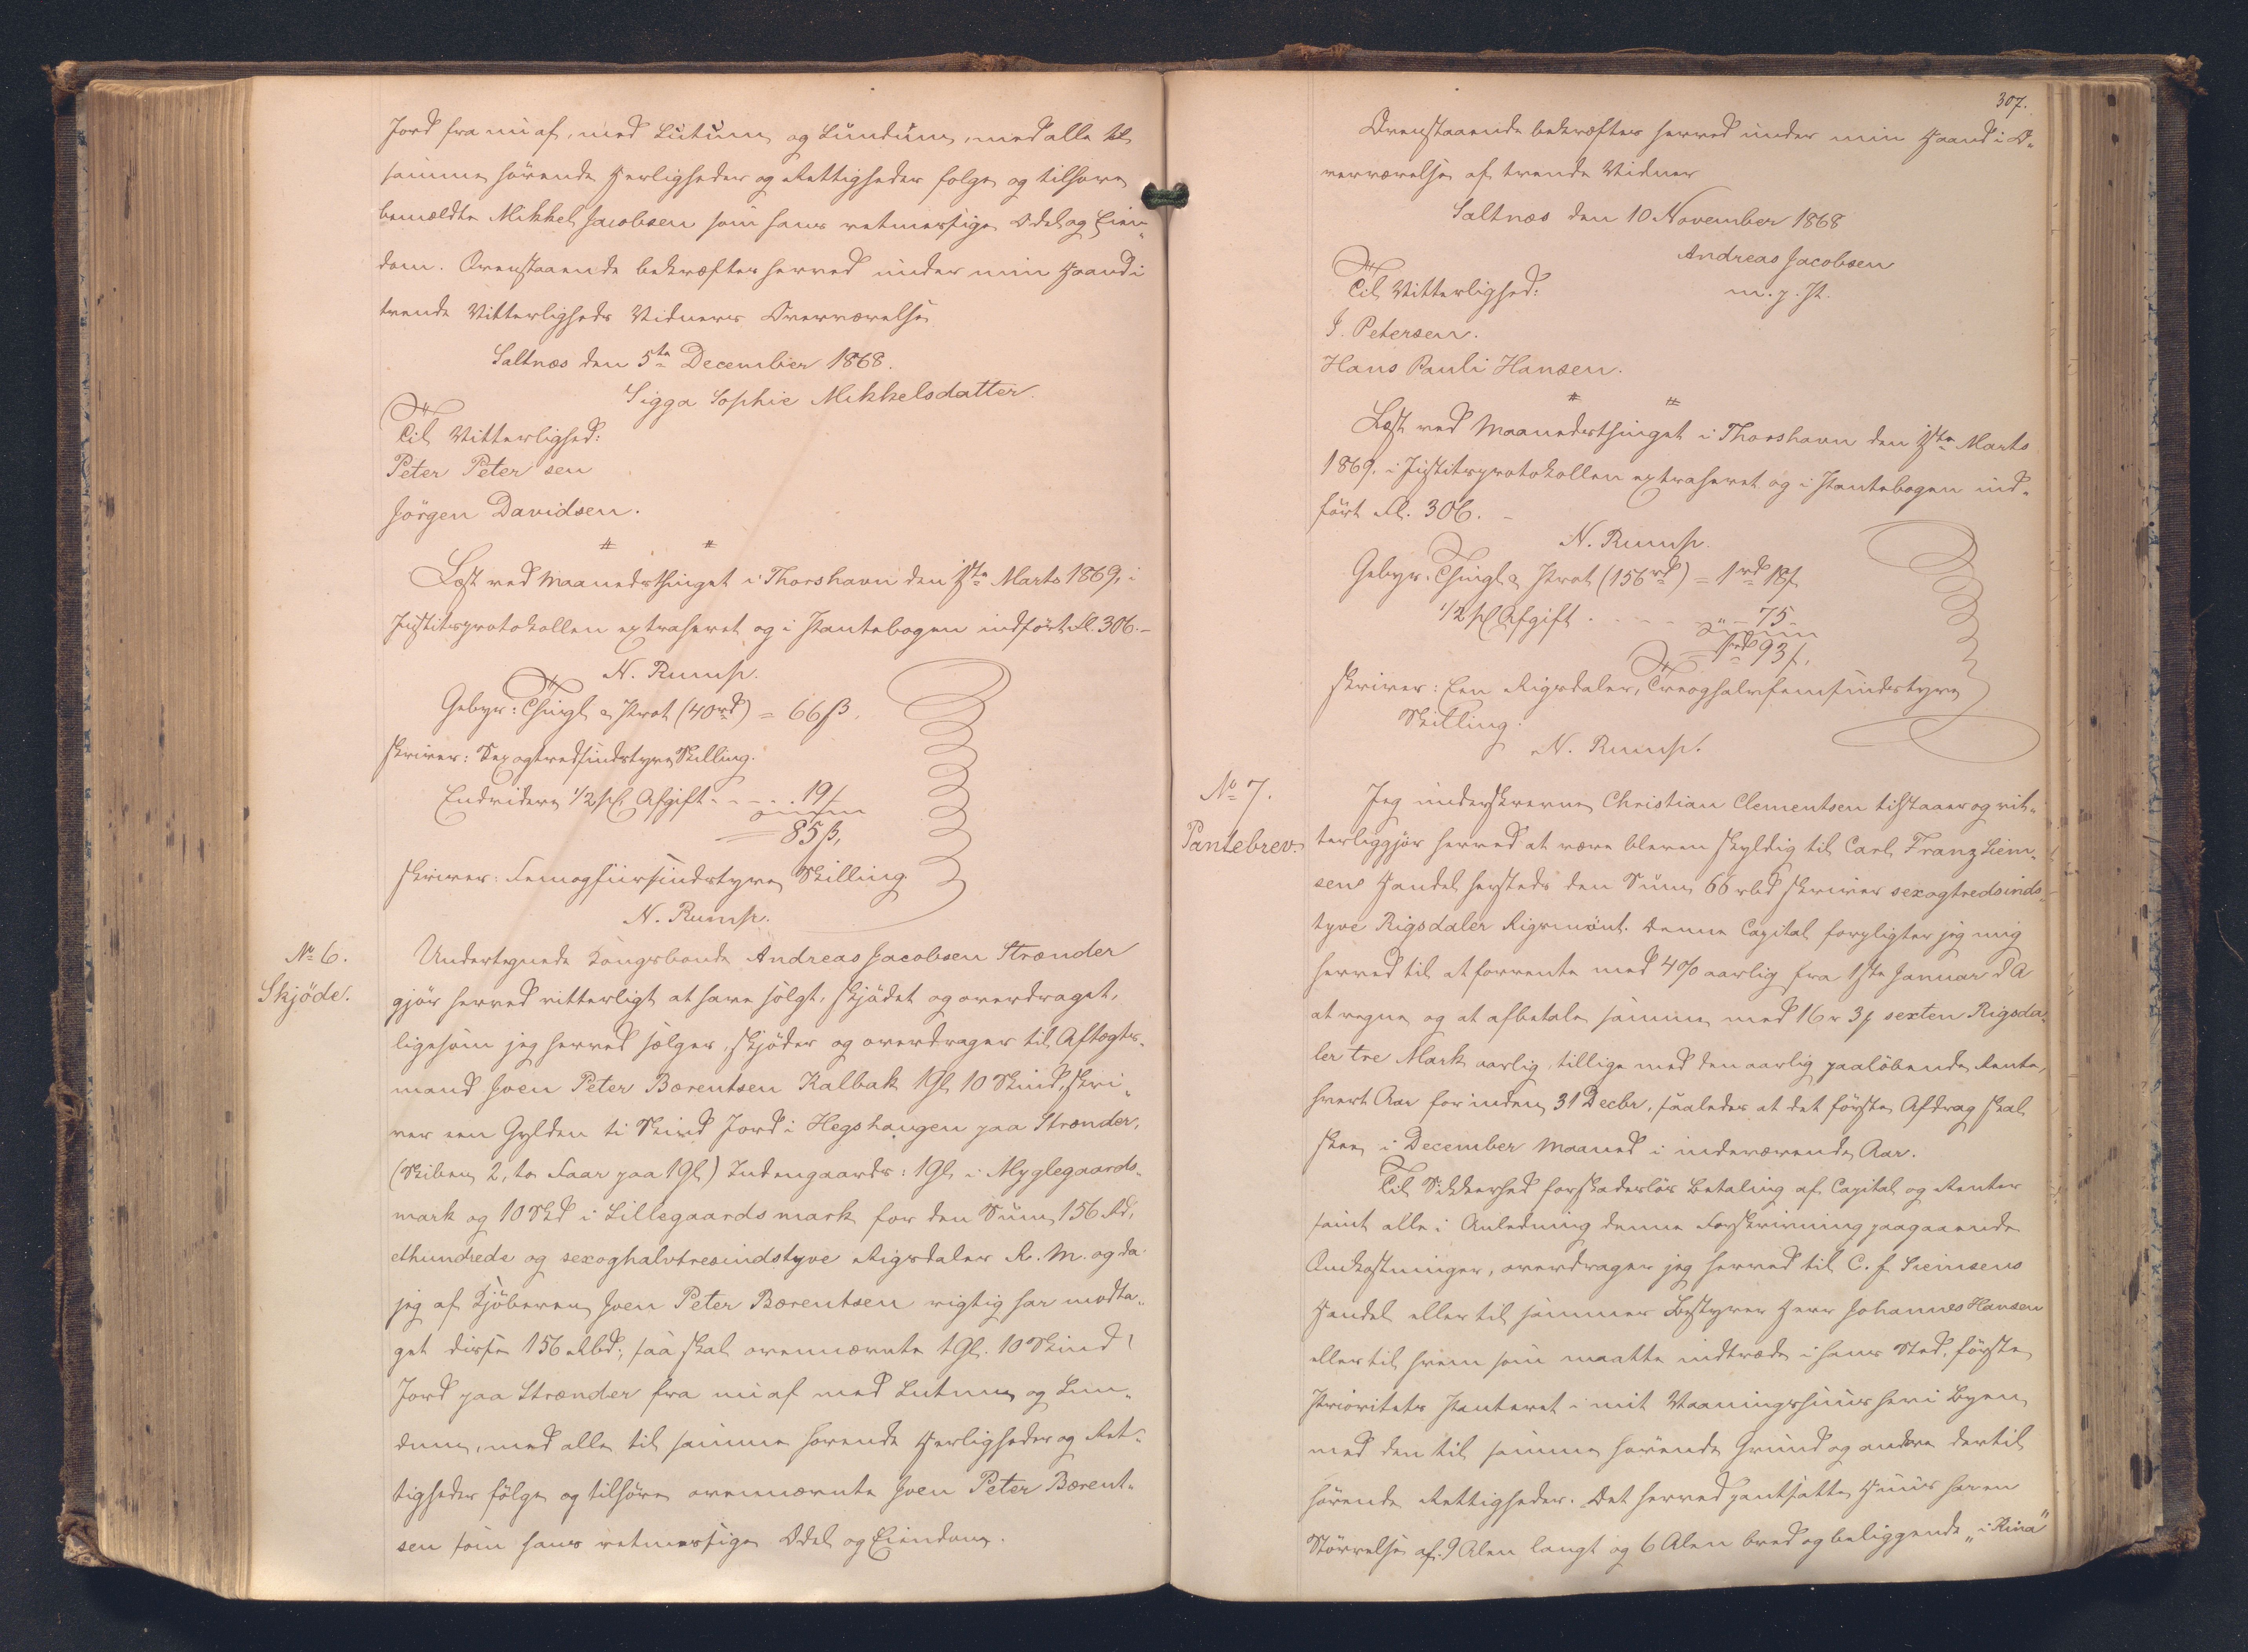 Jord fra nu af, med Lutum og Lundum, med alle til
samme hørende Herligheder og Rettigheder følge og tilhøre
bemældte Mikkel Jacobsen som hans retmessige Odel og Eien-
dom. Ovenstaaende bekræftes herved under min Haand i
trende Vitterligheds Vidners Overværelse
Saltnæs den 5te December 1868.
Sigga Sophie Mikkelsdatter.
Til Vitterlighed:
Peter Petersen
Jörgen Davidsen.
Læst ved Maanedsthinget i Thorshavn den 1ste Marts 1869, i
Justitsprotokollen extraheret og i Pantebogen indført Fl. 306.-
N. Rump.
Gebyr: Thingl. & Prot (40rd) = 66ß,
skriver: Sexogtredsindstyve Skilling.
Endvidere 1/2 pCt Afgift . . . . 19ß
= 85ß,
skriver: Femogfiirsindstyve Skilling.
N. Rump.
No 6.
Skjöde.
Undertegnede Kongsbonde Andreas Jacobsen Strænder
gjør herved vitterligt at have solgt, skjødet og overdraget,
ligesom jeg herved sælger, skjøder og overdrager til Aftægts-
mand Joen Peter Bærentsen Kalbak 1Gl. 10 Skind, skri-
ver een Gylden ti Skind Jord i Hegshaugen paa Strænder,
(Skiben 2, to Faar paa 1Gl) Indengaards: 1Gl. i Myglegaards-
mark og 10 Skd i Lillegaardsmark for den Sum 156 Rd,
ethundrede og sexoghalvtresindstyve Rigsdaler R. M. og da
jeg af Kjøberen Joen Peter Bærentsen rigtig har modta-
get disse 156 Rbd:, saa skal ovennævnte 1Gl. 10 Skind
Jord paa Strænder fra nu af med Lutum og Lun-
dum, med alle til samme hørende Herligheder og Ret-
tigheder følge og tilhøre ovennævnte Joen Peter Bærent-
sen som hans retmessige Odel og Eiendom.
307.
Ovenstaaende bekræftes herved under min Haand i O-
verværelse af trende Vidner
Saltnæs den 10 November 1868
Andreas Jacobsen
m. p. P.
Til Vitterlighed:
J. Petersen.
Hans Pauli Hansen.
Læst ved Maanedsthinget i Thorshavn den 1ste Marts
1869, i Justitsprotokollen extraheret og i Pantebogen ind-
ført Fl. 306. -
N. Rump.
Gebyr. Thingl & Prot (156rd) = 1rd 18ß
1/2 pCt Afgift . . . . " - 75 -
1rd 93ß,
skriver: Een Rigsdaler, Treoghalvfemsindstyve
Skilling.
N. Rump.
No 7.
Pantebrev.
Jeg underskrevne Christian Clementsen tilstaaer og vit-
terliggjør herved at være bleven skyldig til Carl Franz Siem-
sens Handel hersteds den Sum 66 rbd skriver sexogtredsinds-
tyve Rigsdaler Rigsmønt. Denne Capital forpligter jeg mig
herved til at forrente med 4% aarlig fra 1ste Januar d A
at regne og at afbetale samme med 16 r 3 ꝗ sexten Rigsda-
ler tre Mark aarlig, tillige med den aarlig paaløbende Rente,
hvert Aar forinden 31 Decbr, saaledes at det første Afdrag skal
skee i December Maaned i indeværende Aar.
Til Sikkerhed for skadesløs Betaling af Capital og Renter
samt alle i Anledning denne Forskrivning paagaaende
Omkostninger, overdrager jeg herved til C. F. Siemsens
Handel eller til sammes Bestyrer Herr Johannes Hansen
eller til hvem som maatte indtræde i hans Sted, første
Prioritets Panteret i mit Vaaningshuus her i Byen
med den til samme hørende Grund og andre dertil
hørende Rettigheder. Det herved pantsatte Huus har en
Størrelse af 9 Alen langt og 6 Alen bred og beliggende „i Rina"